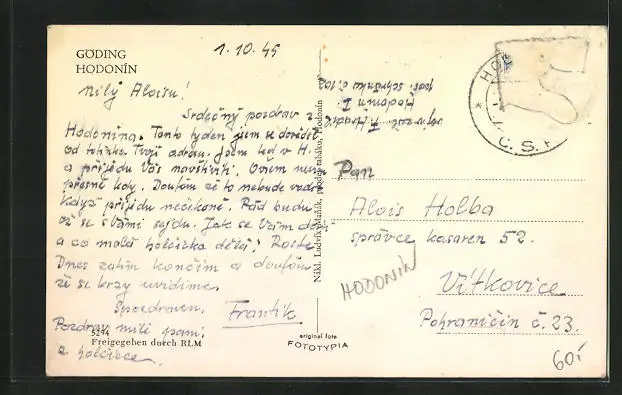 GÖDING
HODONÍN
1.10.45
Milý Aloisu!
Srdečný pozdrav z
Hodonína. Tento týden jsem se dověděl
od tehdka Tvoji adresu. Jsem teď v H.
a přijedu Vás navštívit. Ovšem nevím
přesně kdy. Doufám že to nebude vadit
když přijedu nečekaně. Rád budu
až se s Vámi sejdu. Jak se Vám daří
a co malá holčička dělá? Roste
Dnes zatím končím a doufám
že se brzy uvidíme.
S pozdravem, Frantík
Pozdrav milé paní,
a holčičce.
5244
Freigegeben durch RLM
Nákl. Ludvík prodej tabáku, Hodonín
Hodonín I.
poš. schránka č. 102
HO
Č.S.
Pan
Alois Holba
správce kasáren 52.
Vítkovice
Pohraniční č. 23.
HODONÍN
original foto
FOTOTYPIA
60